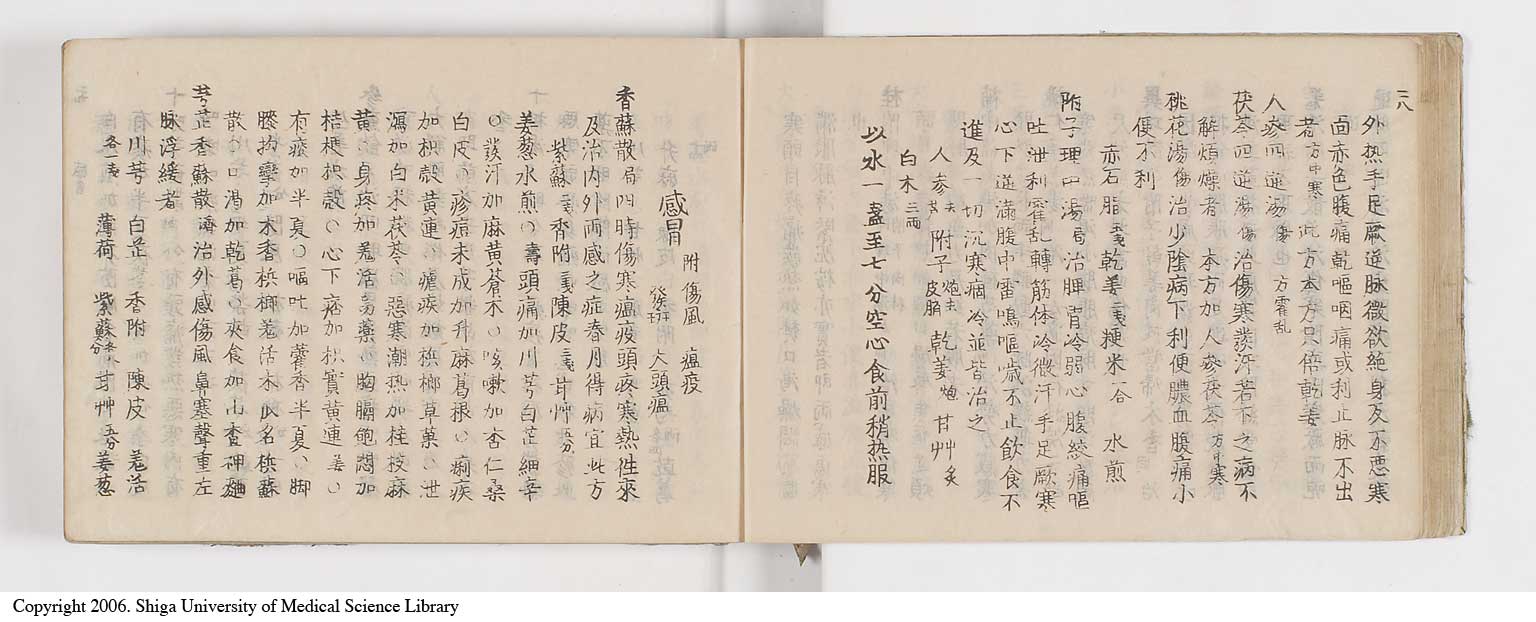 二八
外热手足厥逆脉微欲絶身反不悪寒
面赤色腹痛乾嘔咽痛或利止脉不出
者 方中寒 此方本方只倍乾姜
人参四逆湯 傷 方霍乱
茯苓四逆湯 傷 治傷寒発汗若下之病不
解煩燥者 本方加人参茯苓 方中寒
桃花湯 傷 治少陰病下利便膿血腹痛小
便不利
赤石脂 乾姜 粳米 水煎
附子理中湯 局 治脾胃冷弱心腹絞痛嘔
吐泄利霍乱轉筋体冷微汗手足厥寒
心下逆滿腹中雷鳴嘔歳不止飲食不
進及一切沉寒痼冷並皆治之
人参 去芦 附子 炮去皮脐 乾姜 炮 甘艸 炙
白术 二両
以水一盞至七分空心食前稍热服
感冒 附 傷風 瘟疫
大頭瘟
香蘇散 局 四時傷寒瘟疫頭疼寒熱徃來
及治内外两感之症春月得病宜此方
紫蘇 香附 陳皮 甘艸
姜葱水煎○壽頭痛加川芎白芷細辛
○発汗加麻黄蒼术○咳嗽加杏仁桑
白皮○疹痘未成加升麻葛根○痢疾
加枳殻黄連○瘧疾加梹榔草菓○泄
瀉加白术茯苓○惡寒潮热加桂枝麻
黄○身疼加羗活芍藥○胸膈飽悶加
桔梗枳殻○心下痞加枳實黄連姜○
有痰加半夏○嘔吐加藿香半夏○脚
膝拘攣加木香梹榔羗活木瓜名梹蘇
散○口渇加乾葛○夾食加山査神麯
芎芷香蘇散 濟 治外感傷風鼻塞聲重左
脉浮緩者
川芎 白芷 香附 陳皮 羗活
各一戔 薄荷 紫蘇 甘艸 五分 姜葱